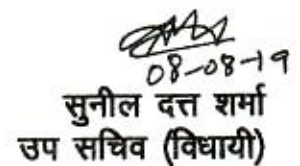 08-08-19
सुनील दत्त शर्मा
उप सचिव (विधायी)